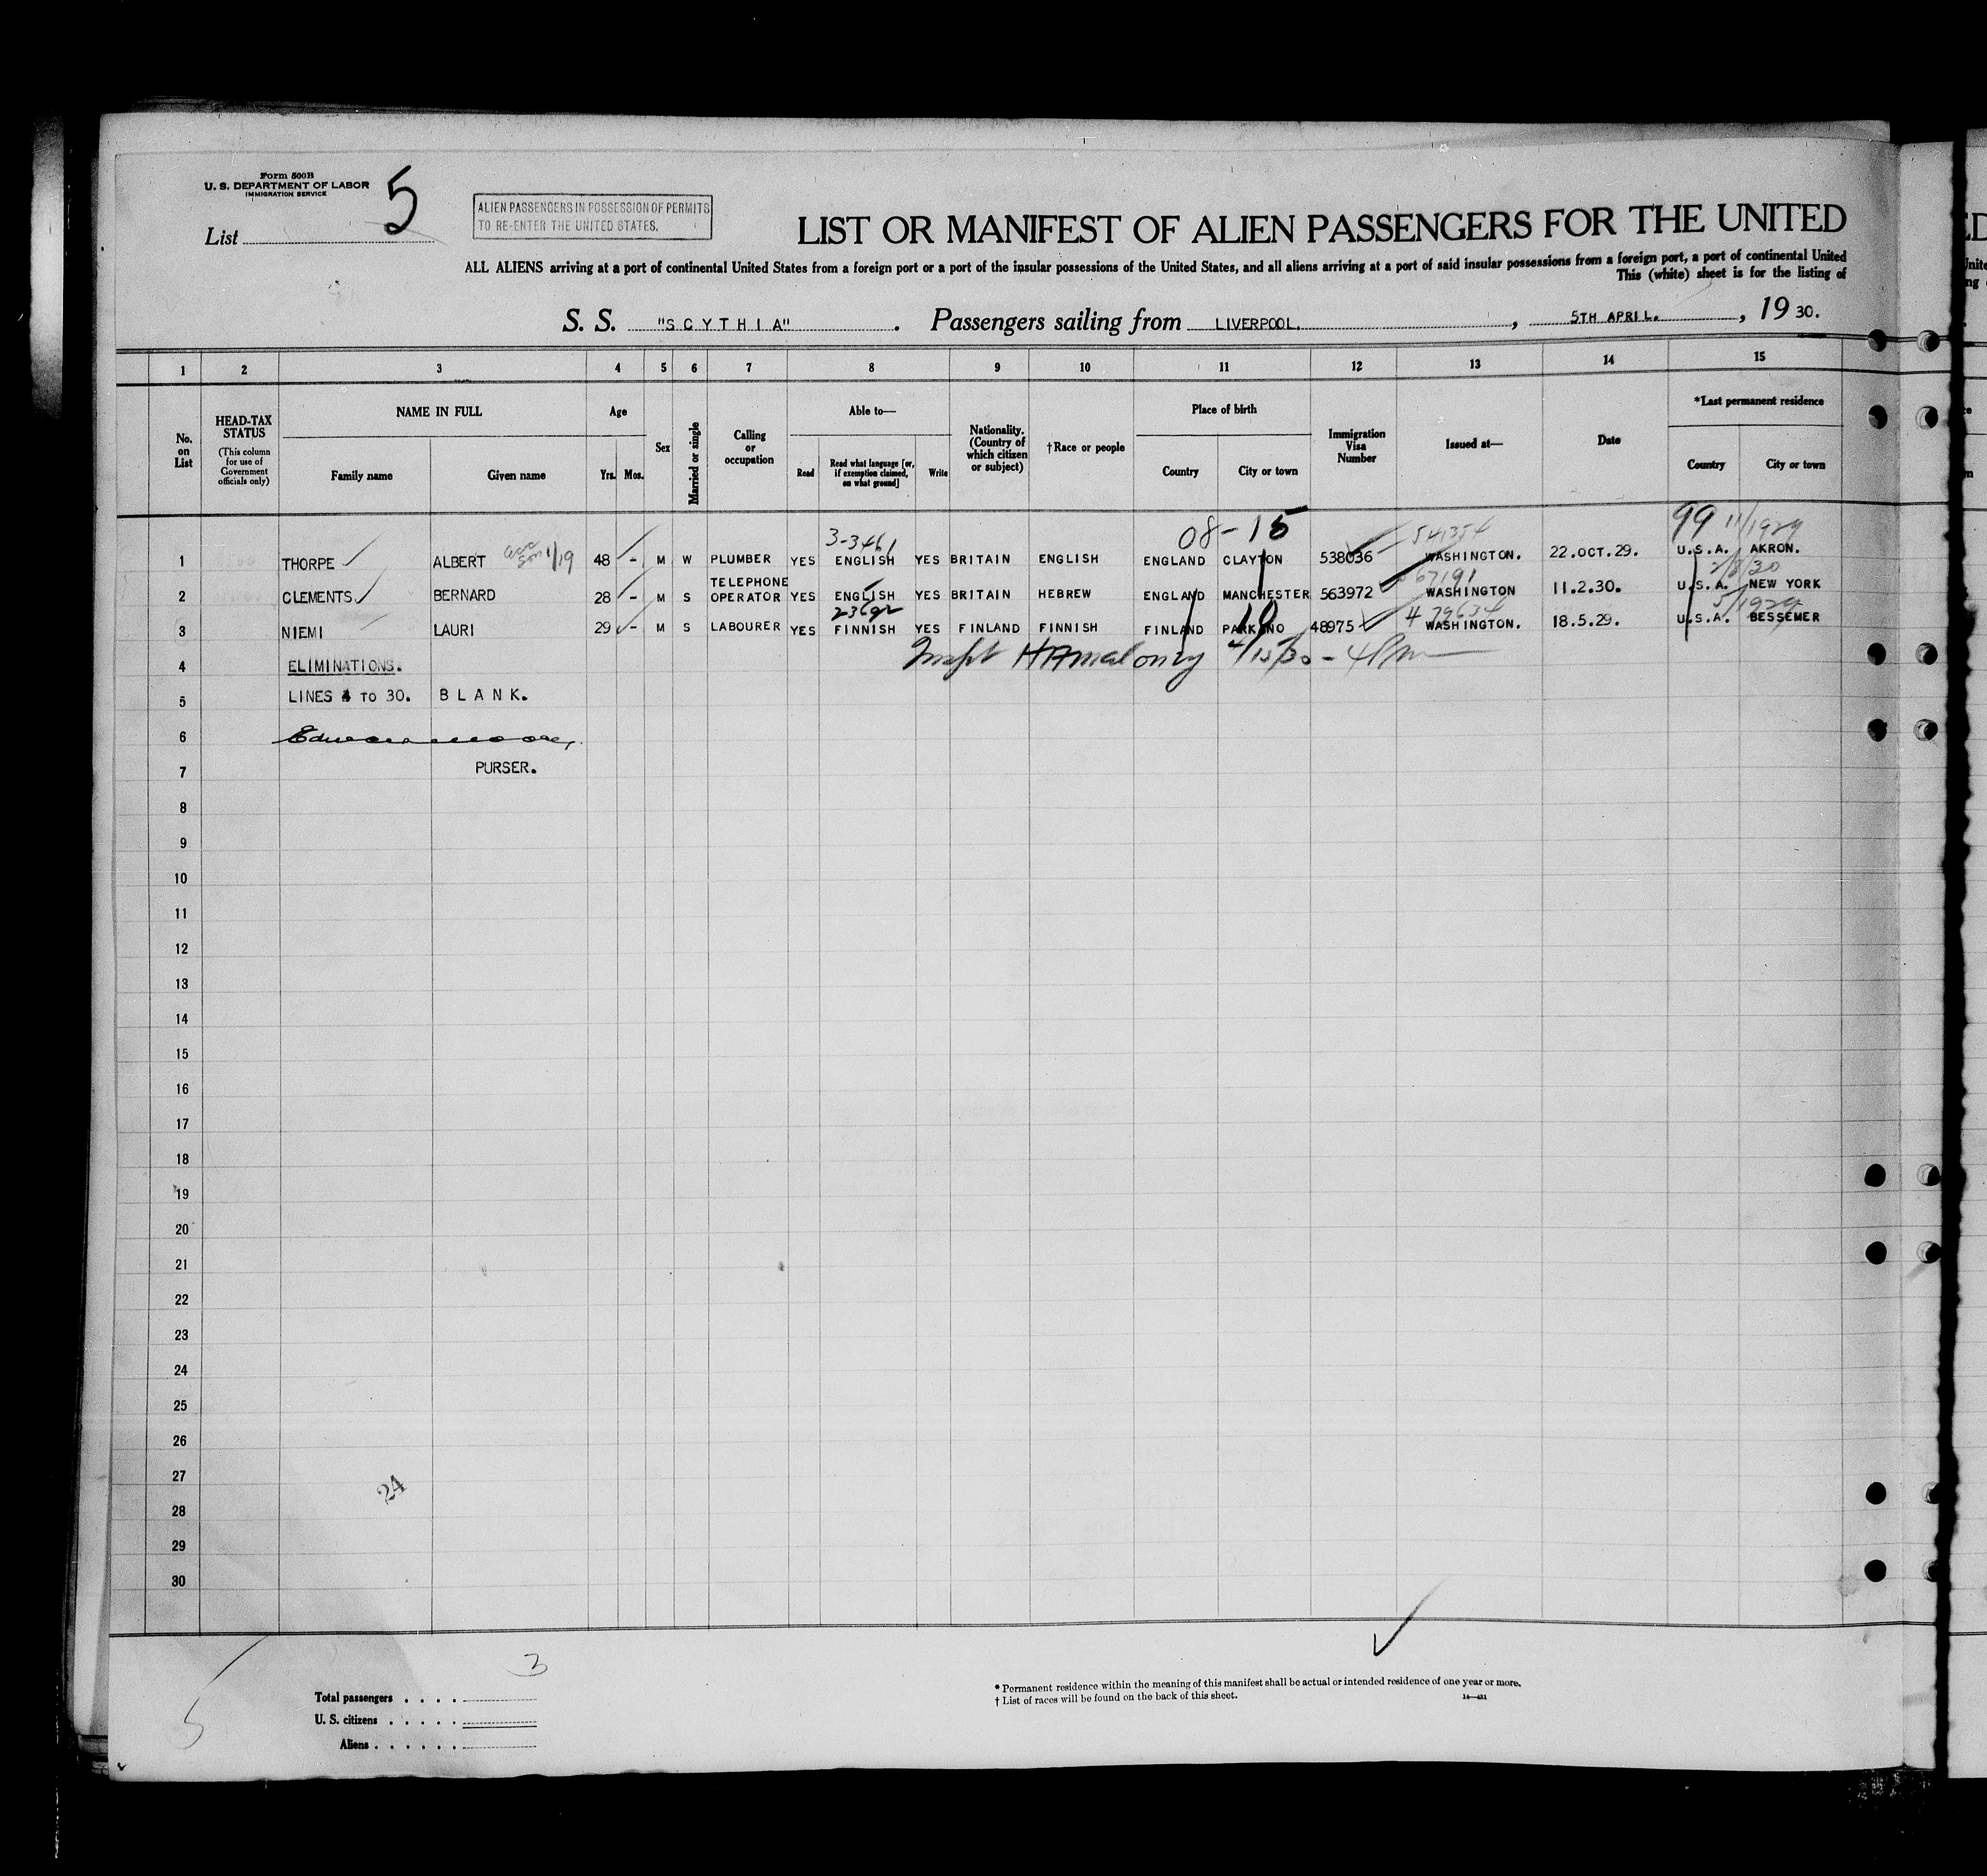 Form 500B
U. S. DEPARTMENT OF LABOR
IMMIGRATION SERVICE
List 5
ALIEN PASSENGERS IN POSSESSION OF PERMITS
TO RE-ENTER THE UNITED STATES.
LIST OR MANIFEST OF ALIEN PASSENGERS FOR THE UNITED
ALL ALIENS arriving at a port of continental United States from a foreign port or a port of the insular possessions of the United States, and all aliens arriving at a port of said insular possessions from a foreign port, a port of continental United
This (white) sheet is for the listing of
S. S. "SCYTHIA" . Passengers sailing from LIVERPOOL. , 5TH APRIL. , 19 30.
1 2 3 4 5 6 7 8 9 10 11 12 13 14 15
No. on List
HEAD-TAX STATUS (This column for use of Government officials only)
NAME IN FULL
Family name
Given name
Age
Yrs.
Mos.
Sex
Married or single
Calling or occupation
Able to—
Read
Read what language [or, if exemption claimed, on what ground]
Write
Nationality. (Country of which citizen or subject)
†Race or people
Place of birth
Country
City or town
Immigration Visa Number
Issued at—
Date
*Last permanent residence
Country
City or town
08-15 541354 99 11/1929
3-3461
1 THORPE ALBERT 1/19 48 - M W PLUMBER YES ENGLISH YES BRITAIN ENGLISH ENGLAND CLAYTON 538036 WASHINGTON. 22.OCT.29. U.S.A. AKRON.
67191 2/8/30
2 CLEMENTS BERNARD 28 - M S TELEPHONE OPERATOR YES ENGLISH YES BRITAIN HEBREW ENGLAND MANCHESTER 563972 WASHINGTON 11.2.30. U.S.A. NEW YORK
19 479634 5/1929
3 NIEMI LAURI 29 - M S LABOURER YES FINNISH YES FINLAND FINNISH FINLAND PARKANO 48975 WASHINGTON. 18.5.29. U.S.A. BESSEMER
4 ELIMINATIONS.
5 LINES 4 TO 30. BLANK.
6
7 PURSER.
8
9
10
11
12
13
14
15
16
17
18
19
20
21
22
23
24
25
26
27
24
28
29
30
3
5
Total passengers
U. S. citizens
Aliens
* Permanent residence within the meaning of this manifest shall be actual or intended residence of one year or more.
† List of races will be found on the back of this sheet.